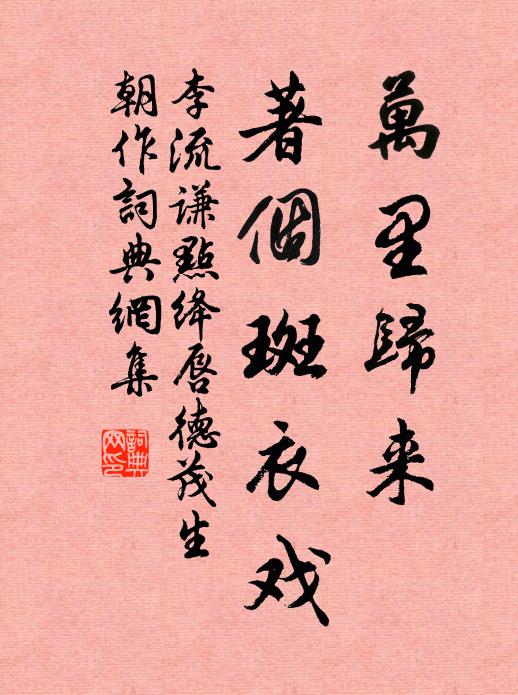 萬里歸来
著個斑衣戏
李流谦點绛唇德茂生
朝作詞典網集
詞典
网印